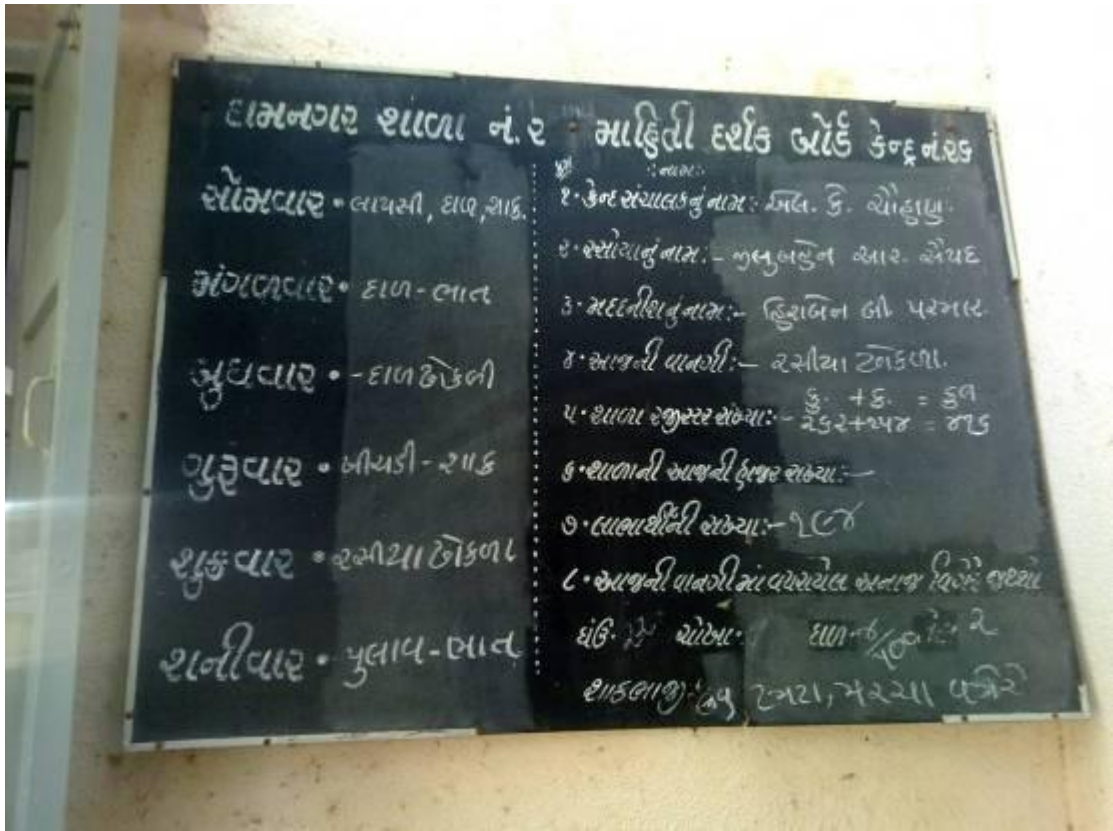 દામનગર શાળા નં.૨ • માહિતી દર્શક બોર્ડ કેન્દ્ર નં.૨૬
સોમવાર • લાપસી, દાળ, શાક.
મંગળવાર • દાળ-ભાત
બુધવાર • -દાળઢોકળી
ગુરૂવાર • ખીચડી-શાક
શુક્રવાર • રસીયા ઢોકળા
શનીવાર • પુલાવ-ભાત
:નામ:
૧• કેન્દ્ર સંચાલકનું નામ:- એલ. કે. ચૌહાણ
૨• રસોયાનું નામ:- આર. સૈયદ
૩• મદદનીશનું નામ:- હિરાબેન બી પરમાર.
૪• આજની વાનગી:- રસીયા ઢોકળા.
કુ. + ક. =
૫• શાળા રજીસ્ટર સંખ્યા:- ૨૬૨+૧૫૪ = ૪૧૬
૬• શાળાની આજની હાજર સંખ્યા:-
૭• લાભાર્થીની સંખ્યા:- ૧૯૪
૮• આજની વાનગીમાં વપરાયેલ અનાજ વિગેરે જથ્થો
ઘંઉ- ચોખા- દાળ- ૨
શાકભાજી:- ટમેટા, મરચા વગેરે